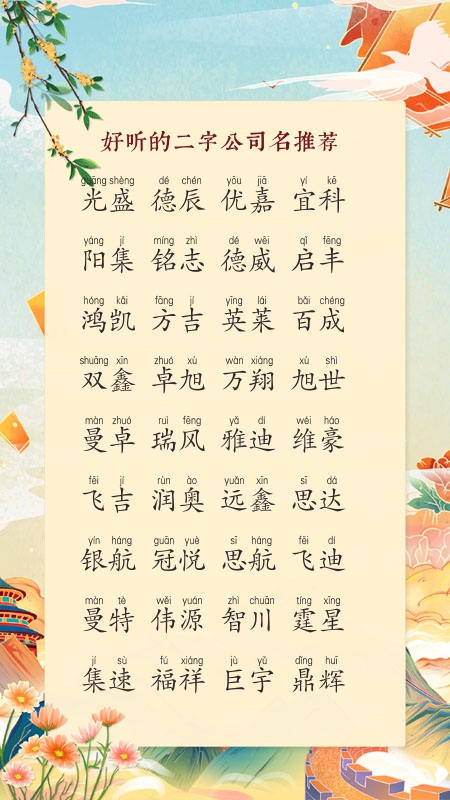 好听的二字公司名推荐
guāng shèng dé chén yōu jiā yí kē
光盛 德辰 优嘉 宜科
yáng jí míng zhì dé wēi qǐ fēng
阳集 铭志 德威 启丰
hóng kǎi fāng jí yīng lái bǎi chéng
鸿凯 方吉 英莱 百成
shuāng xīn zhuó xù wàn xiáng xù shì
双鑫 卓旭 万翔 旭世
màn zhuó ruì fēng yǎ dí wéi háo
曼卓 瑞风 雅迪 维豪
fēi jí rùn ào yuǎn xīn sī dá
飞吉 润奥 远鑫 思达
yín háng guān yuè sī háng fēi dí
银航 冠悦 思航 飞迪
màn tè wěi yuán zhì chuān tíng xīng
曼特 伟源 智川 霆星
jí sù fú xiáng jù yǔ dǐng huī
集速 福祥 巨宇 鼎辉